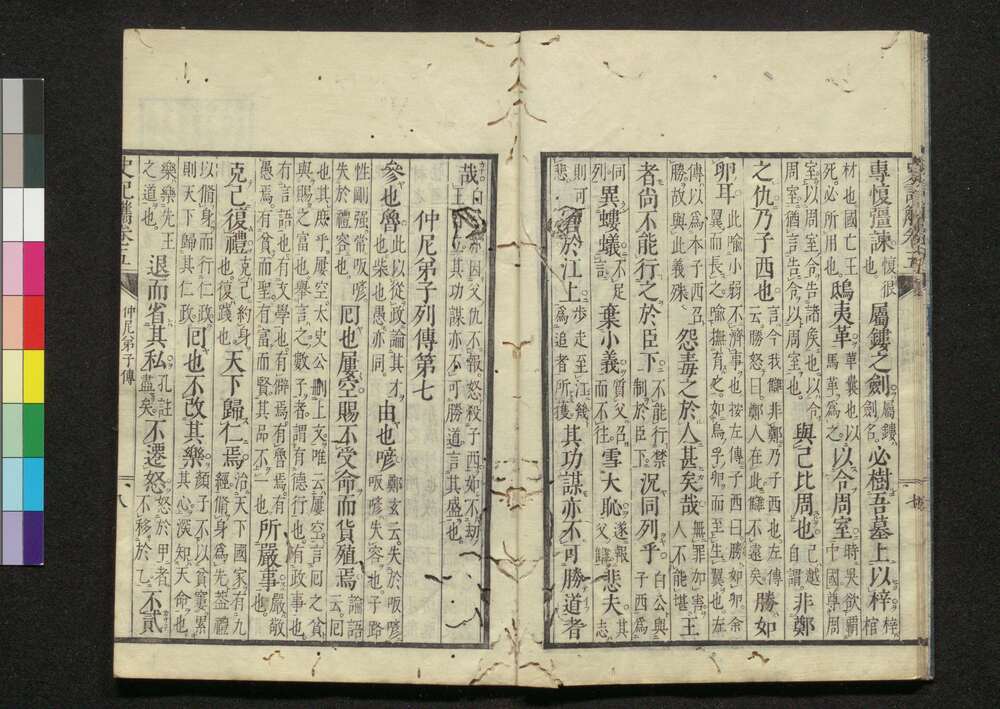 專愎彊諫愎很也屬鏤之劍屬鏤劍名必樹吾墓上以梓梓棺
材也國亡王死必所用也鴟夷革革囊也以馬革爲之以令周室時吳欲霸中國尊周
室以周室令告諸矦也以令周室猶言告令以周室也與己比周也己越自謂非鄭
之仇乃子西也言今我讎非鄭乃子西也左傳云勝怒曰鄭人在此讎不遠矣勝如
卵耳此喻小弱不濟事也按左傳子西曰勝如卵余翼而長之喻撫育之如鳥孚卵而至生翼也左
傳以爲本子西召勝故與此義殊怨毒之於人甚矣哉無罪如害人人不能堪王
者尚不能行之於臣下不能行禁制於臣下況同列乎白公與子西爲
同列異螻蟻言不足棄小義質父召而不往雪大恥遂報父讎悲夫其志
則可悲窘於江上步走至江幾爲追者所獲其功謀亦不可勝道者
哉白公因父仇不報怒殺子西如不劫王其功謀亦不可勝道言其盛也
仲尼弟子列傳第七
參也魯此以從政論其才柴也愚亦同由也喭鄭玄云失於畈喭畈喭失容也子路
性剛强常畈喭失於禮容也回也屢空賜不受命而貨殖焉論語云回
也其庶乎屢空太史公刪上文唯云屢空言回之貧與賜之富也擧言之數子者謂有德行也有政事也
有言語也有文學也有僻焉有魯焉有愚焉有貧而聖有富而賢其品不一也所嚴事嚴敬也
克己復禮克己約身也復踐也天下歸仁焉治天下國家有九經脩身爲先蓋禮
以脩身而行仁政則天下歸其仁政回也不改其樂顏子不以貧窶累其心深知天命也
樂樂先王之道也退而省其私孔註盡矣不遷怒怒於甲者不移於乙不貳
史記觿卷五 仲尼弟子傳 八